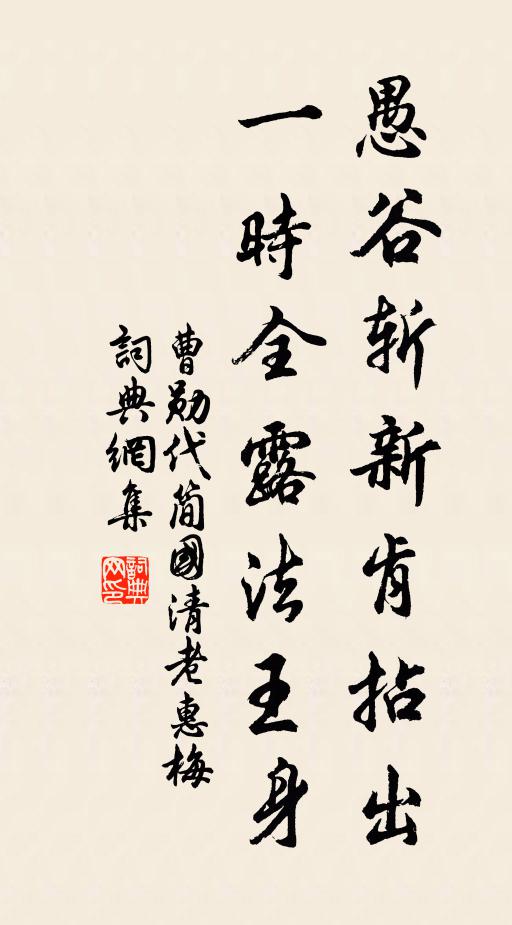 愚谷斩新肯拈出
一時全露法王身
曹勛代简國清老惠梅
詞典網集
詞典网印